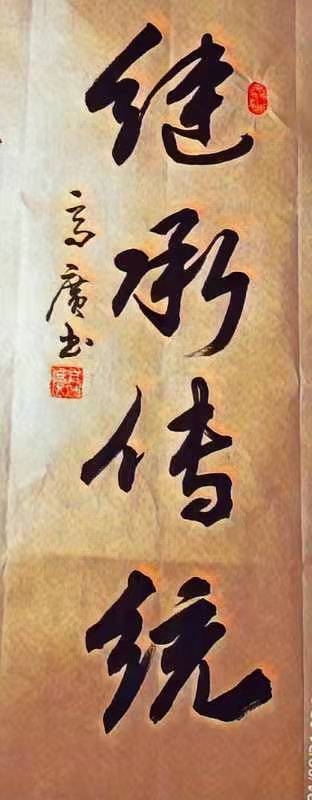 继承传统
高广书